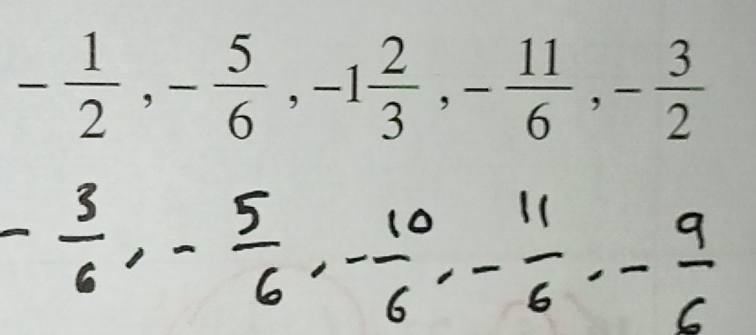 -1/2, -5/6, -1 2/3, -11/6, -3/2
-3/6, -5/6, -10/6, -11/6, -9/6